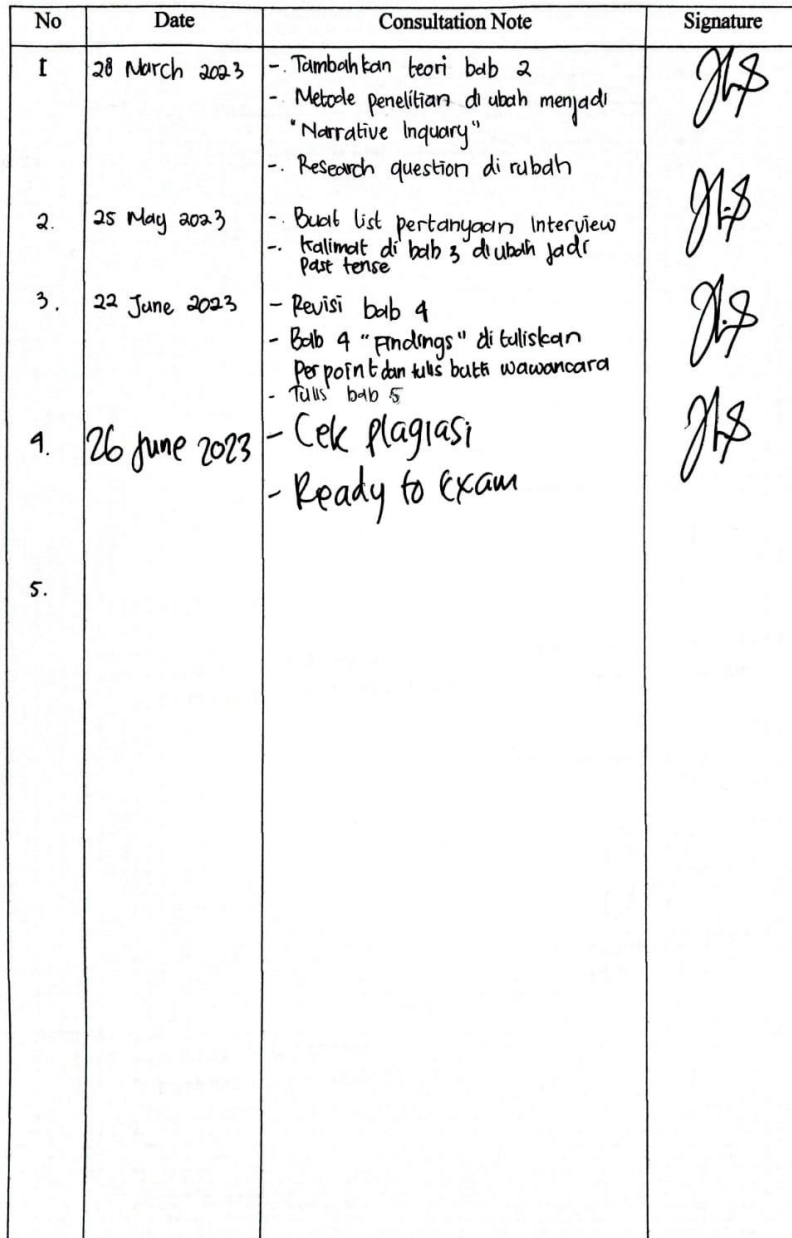 No Date Consultation Note Signature
1 28 March 2023 -. Tambahkan teori bab 2
-. Metode penelitian di ubah menjadi
"Narrative Inquary"
-. Research question di rubah
2. 25 May 2023 -. Buat list pertanyaan Interview
-. Kalimat di bab 3 di ubah jadi
Past tense
3. 22 June 2023 - Revisi bab 4
- Bab 4 "Findings" di tuliskan
Per point dan tulis bukti wawancara
- Tulis bab 5
4. 26 June 2023 - Cek plagiasi
- Ready to Exam
5.